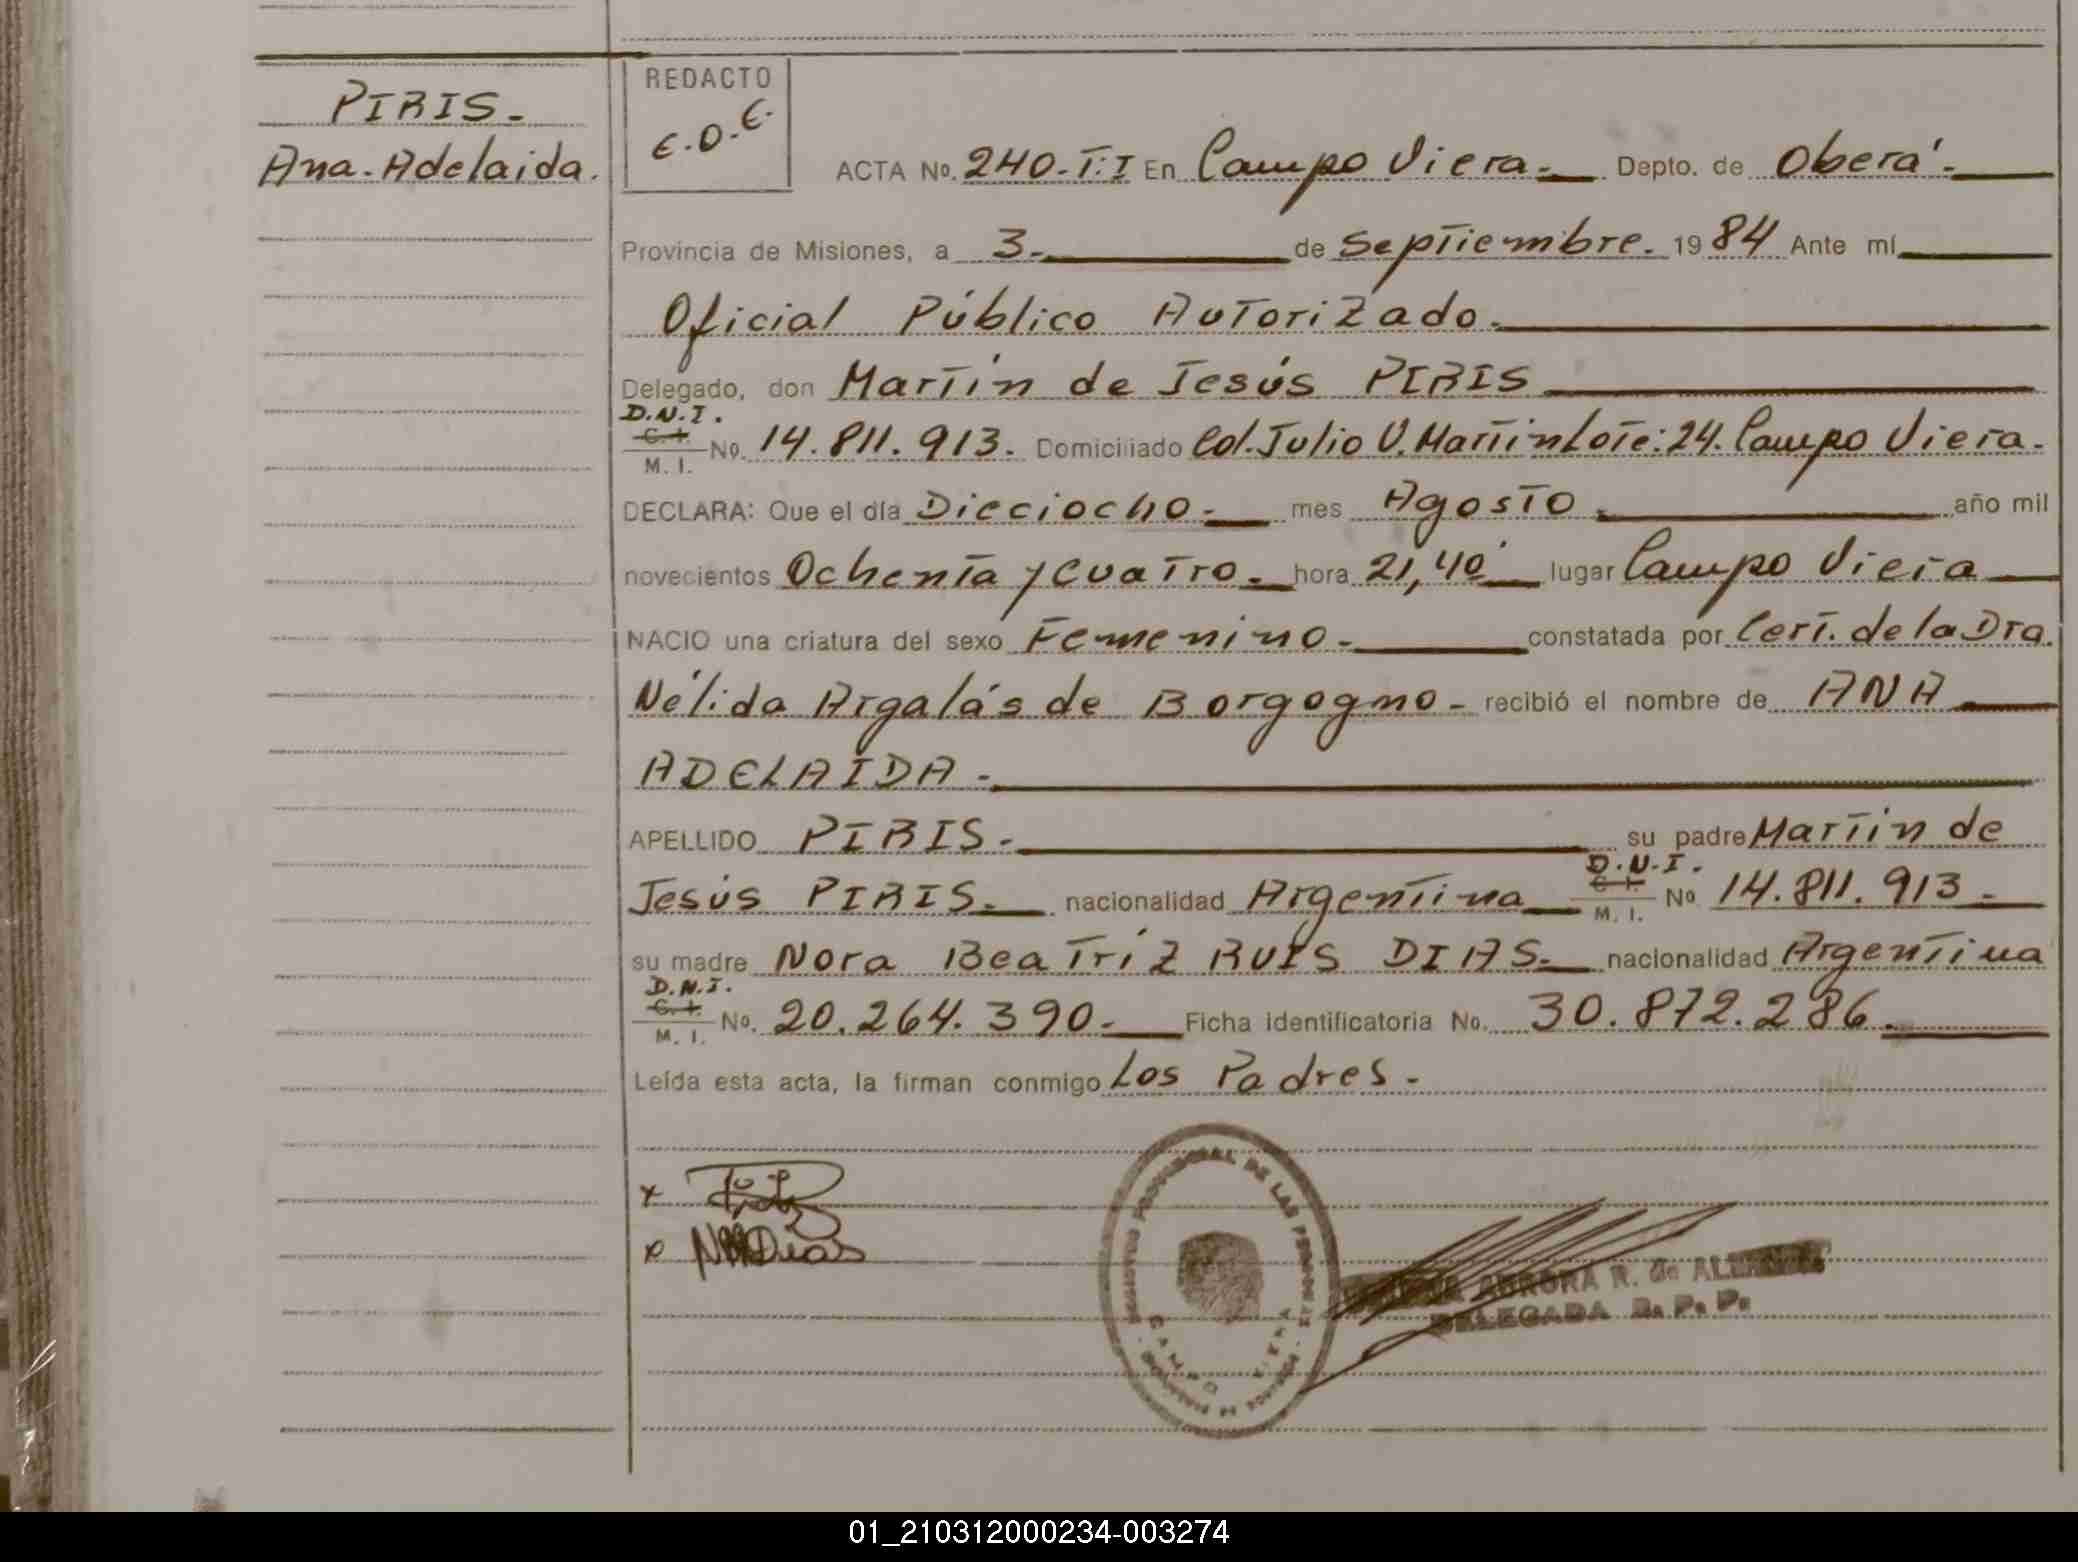 PIRIS.-
Ana. Adelaida.
REDACTO
E.O.E.
ACTA No. 240.-T:I En Campo Viera.- Depto. de Oberá.-
Provincia de Misiones, a 3.- de Septiembre. 19 84 Ante mí
Oficial Público Autorizado.
Delegado, don Martín de Jesús PIRIS
D.N.I.
C. I.
M. I. No. 14.811.913. Domiciliado Col. Julio U. Martin Lote: 24. Campo Viera.
DECLARA: Que el día Dieciocho.- mes Agosto. año mil
novecientos Ochenta y Cuatro.- hora 21,40' lugar Campo Viera
NACIO una criatura del sexo Femenino.- constatada por Cert. de la Dra.
Nélida Argalás de Borgogno - recibió el nombre de ANA
ADELAIDA.-
APELLIDO PIRIS.- su padre Martín de
Jesús PIRIS.- nacionalidad Argentina D.N.I. C. I. M. I. No 14.811.913.-
su madre Nora Beatríz RUIS DIAS.- nacionalidad Argentina
D.N.I.
C. I.
M. I. No. 20.264.390.- Ficha identificatoria No. 30.872.286.
Leída esta acta, la firman conmigo Los Padres.-
x
x Dias
REGISTRO PROVINCIAL DE LAS PERSONAS
CAMPO VIERA
AURORA R. de
DELEGADA R. P. P.
01_210312000234-003274